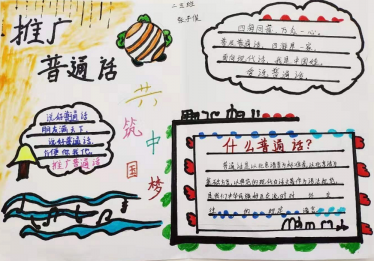 推广
普通话
二五班
说好普通话
朋友满天下
说好普通话
方便你我他
推广普通话
共筑中国梦
四海同音,万众一心。
普及普通话,四海是一家。
面向现代化,我是中国娃,
会说普通话。
什么普通话?
普通话是以北京语音为标准音,以北方话为
基础方言,以典范的现代白话文著作为语法规范